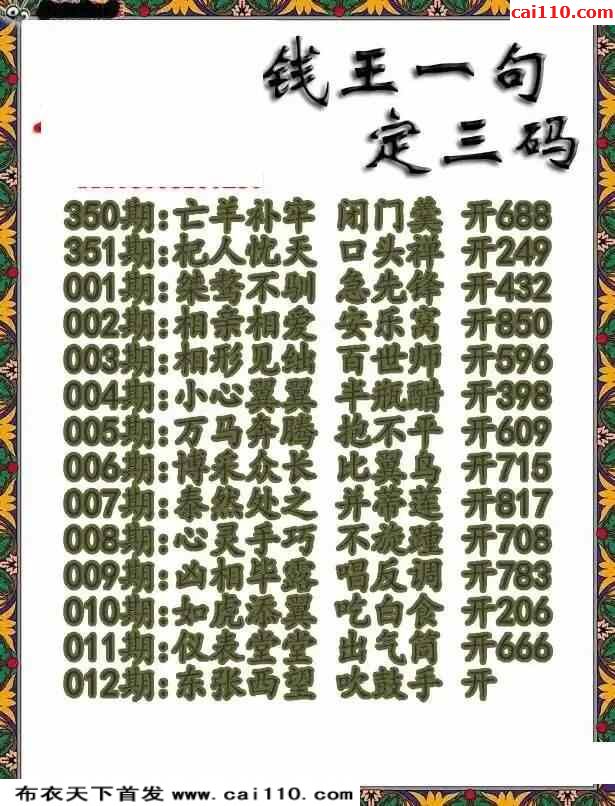 cai110.com
钱王一句
定三码
350期:亡羊补牢 闭门羹 开688
351期:杞人忧天 口头禅 开249
001期:桀骜不驯 急先锋 开432
002期:相亲相爱 安乐窝 开850
003期:相形见绌 百世师 开596
004期:小心翼翼 半瓶醋 开398
005期:万马奔腾 抱不平 开609
006期:博采众长 比翼鸟 开715
007期:泰然处之 并蒂莲 开817
008期:心灵手巧 不旋踵 开708
009期:凶相毕露 唱反调 开783
010期:如虎添翼 吃白食 开206
011期:仪表堂堂 出气筒 开666
012期:东张西望 吹鼓手 开
布衣天下首发 www.cai110.com